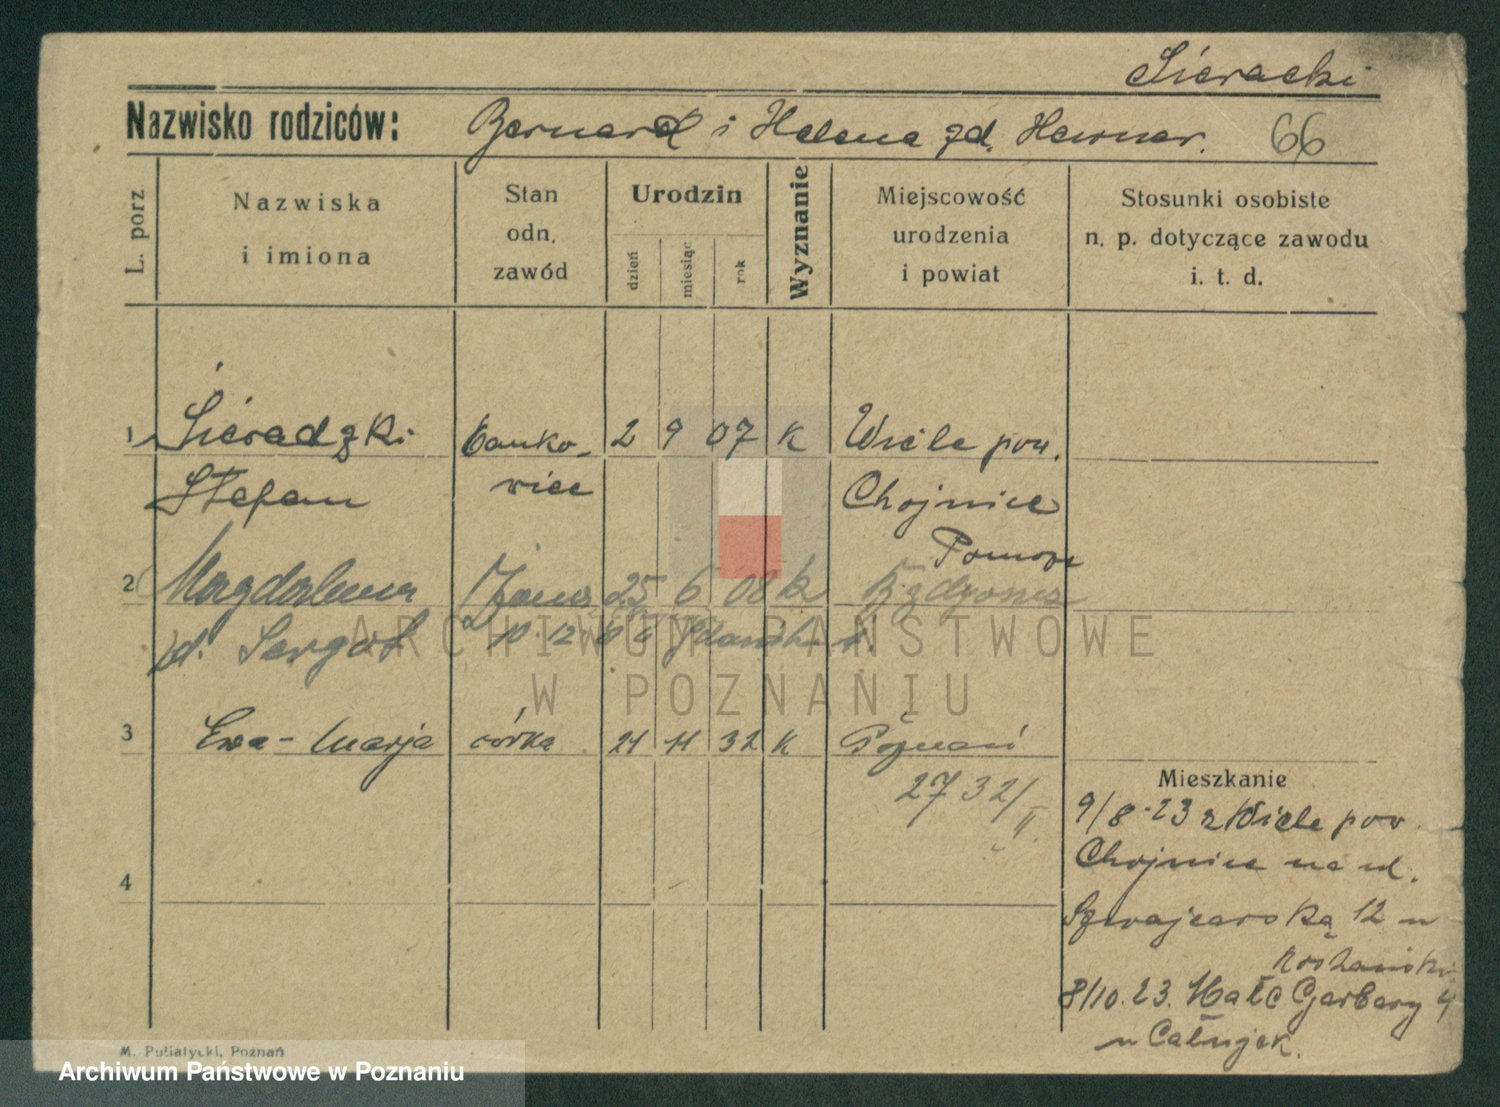 Sieracki
Nazwisko rodziców: Bernard i Helena zd. Hewner. 66
L. porz
Nazwiska
i imiona
Stan
odn.
zawód
Urodzin
dzień
miesiąc
rok
Wyznanie
Miejscowość
urodzenia
i powiat
Stosunki osobiste
n. p. dotyczące zawodu
i. t. d.
1 Sieradzki banko- 2 9 07 K Wiele pow.
Stefan wiec Chojnice
Pomorze
2 Magdalena żona 25 6 08 K Bydgoszcz
d. Sergot 10.12
3 Ewa-Marja córka 21 11 32 K Poznań
2732/II.
4
Mieszkanie
9/8.23 z Wiele pow.
Chojnice na ul.
Szwajcarską 12 u
8/10.23. Garbary 4
u
M. Putiatycki, Poznań
ARCHIWUM PAŃSTWOWE
W POZNANIU
Archiwum Państwowe w Poznaniu